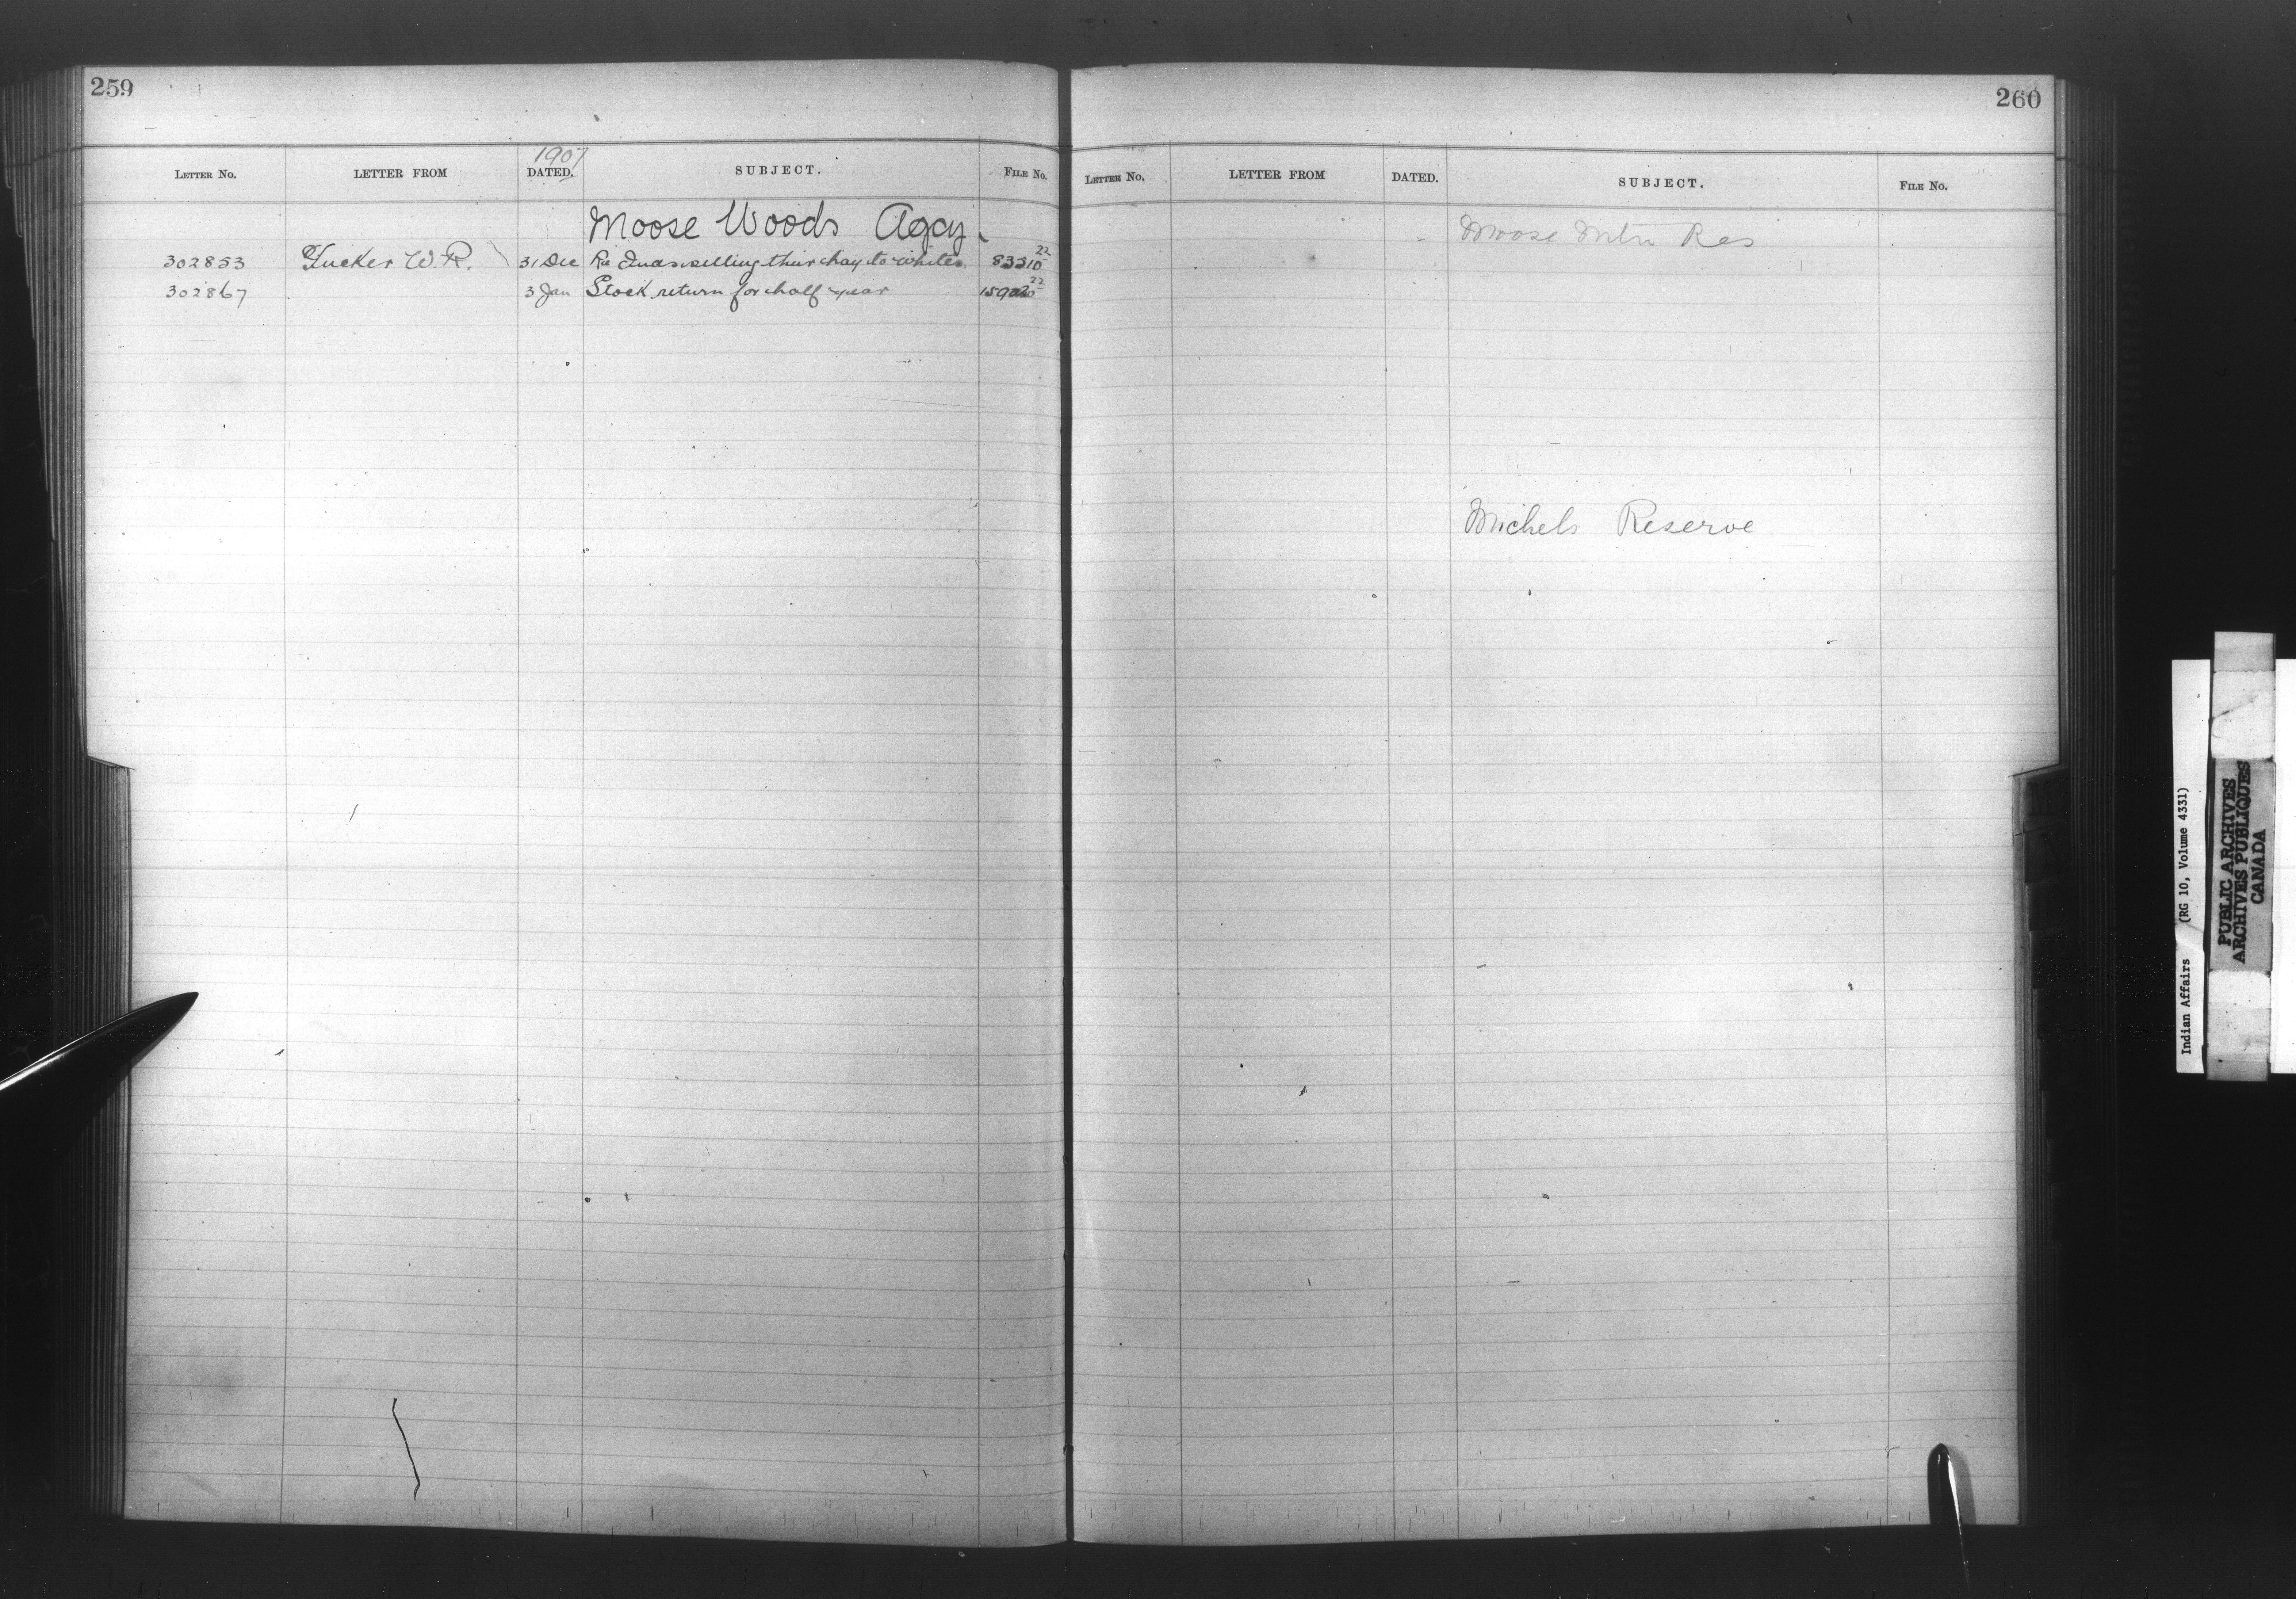 259
1907
LETTER NO. LETTER FROM DATED. SUBJECT. FILE NO.
Moose Woods Agcy.
302853 Tucker W.R. 31 Dec Re Inds selling their hay to whites 83310 22
302867 3 Jan Stock return for half year 22
260
LETTER NO. LETTER FROM DATED. SUBJECT. FILE NO.
Moose Mtn Res
Michels Reserve
Indian Affairs (RG 10, Volume 4331)
PUBLIC ARCHIVES
ARCHIVES PUBLIQUES
CANADA